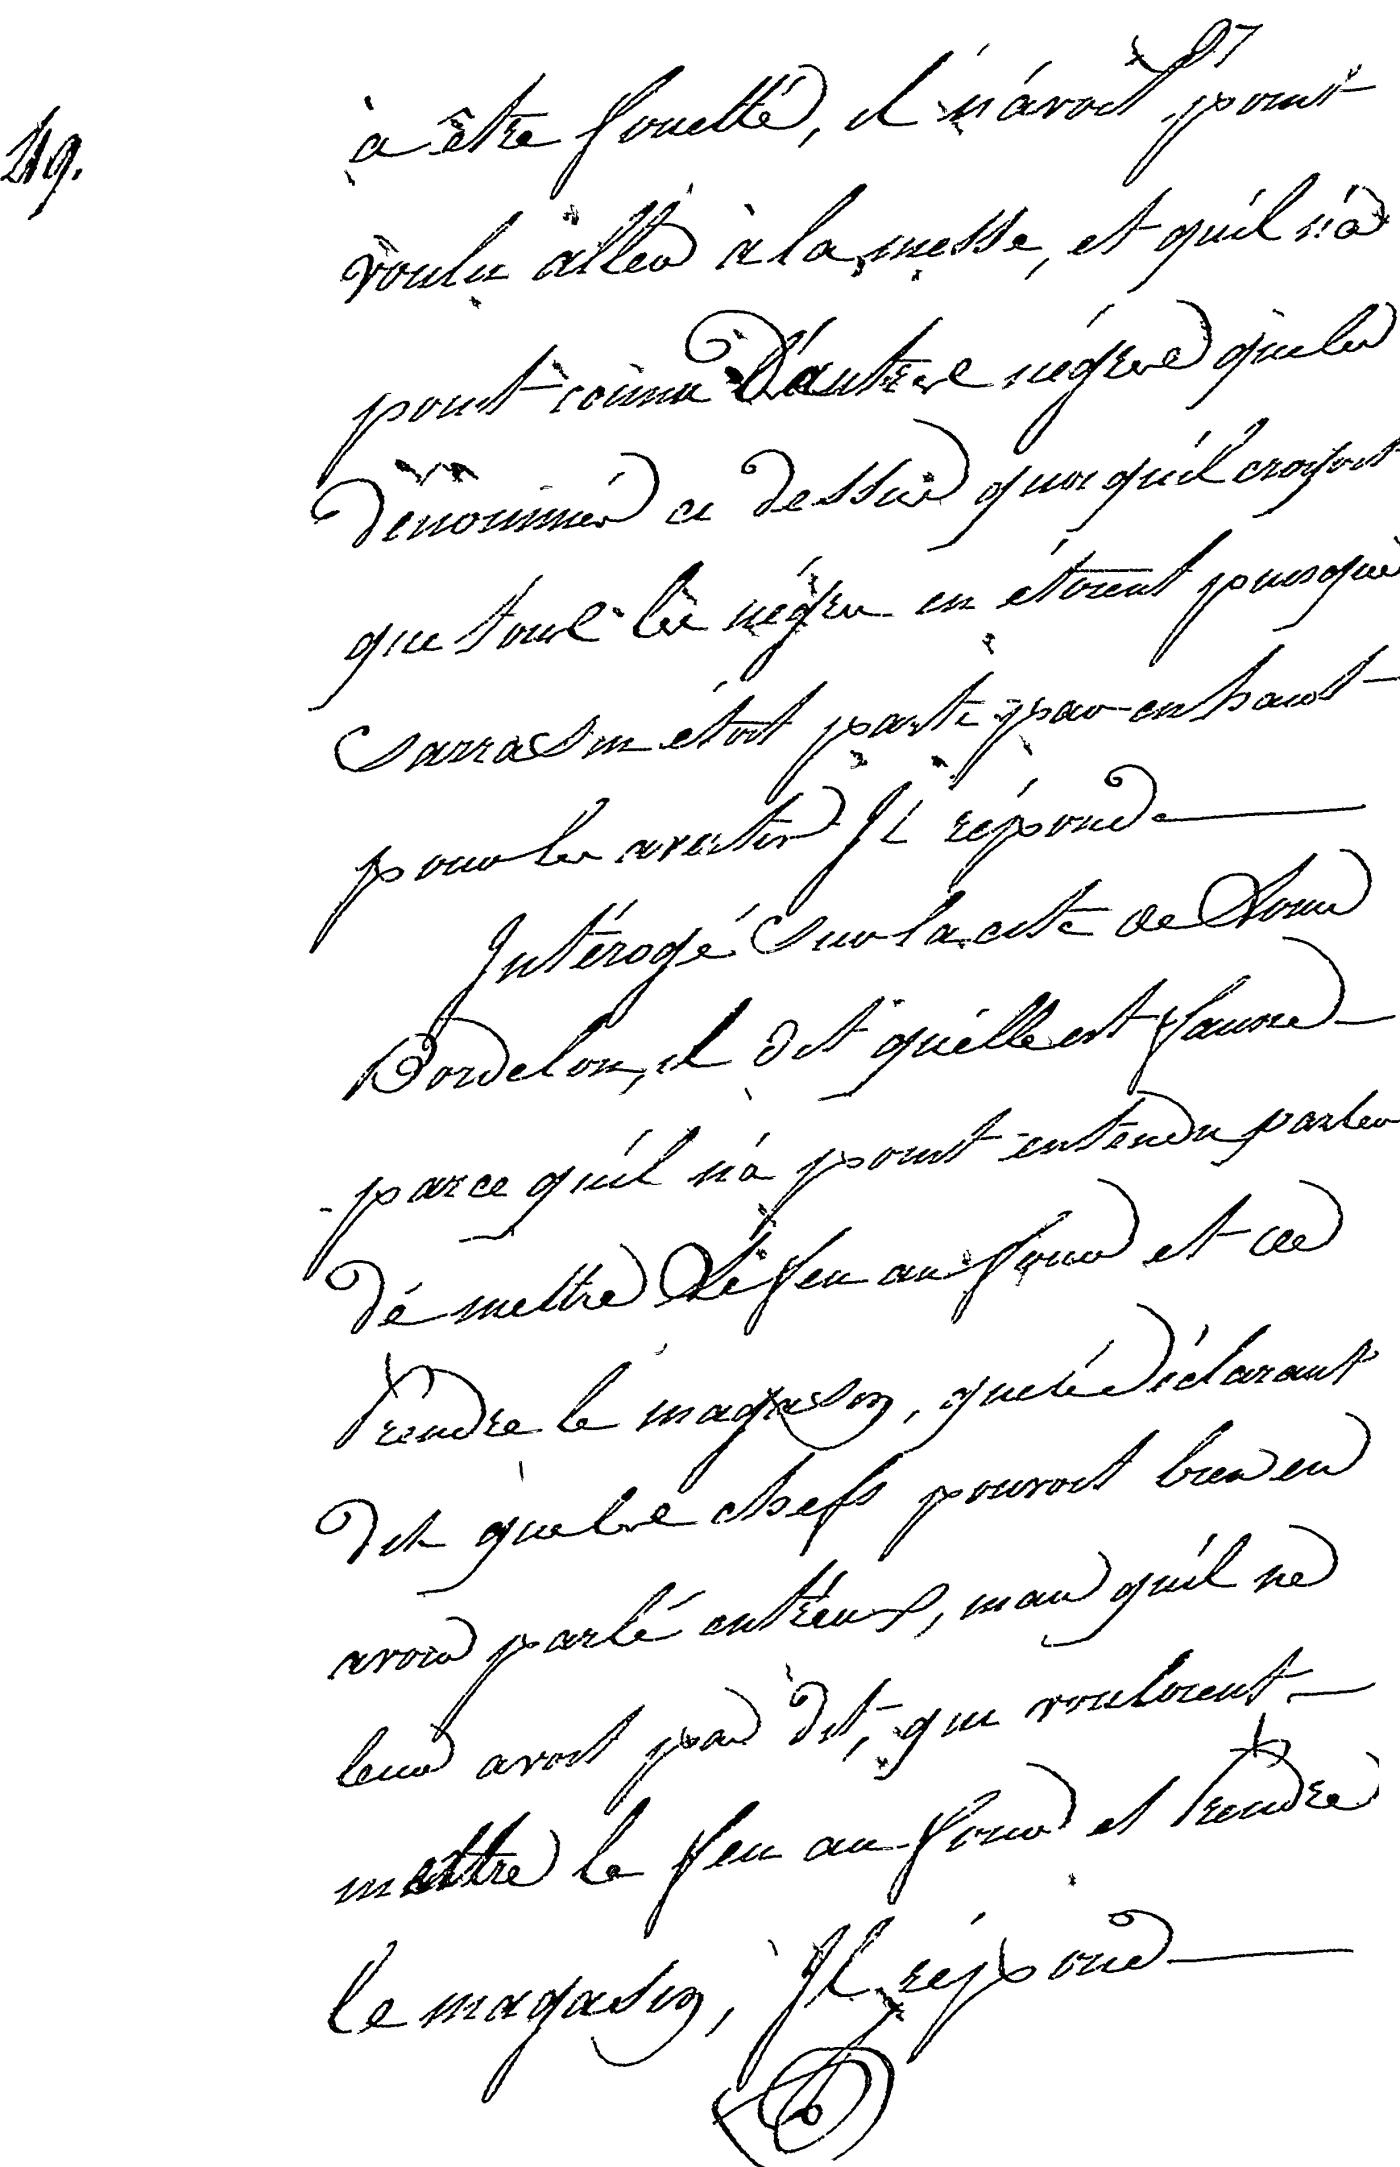 97
49.
à être fouetté, il n'avoit point
voulu aller à la messe, et qu'il n'a
point connu d'autres négres que les
dénommés ci dessus quoiqu'il croyoit
que tous les négres en étoient puisque
Sarrasin étoit parti par en haut
pour les avertir Il répond
Intérogé sur la cite de Louis
Bordelon, il dit qu'elle est fausse
parce qu'il n'a point entendu parler
dé mettre le feu au four et de
Prendre le magasin, que le déclarant
dit que les chefs pouvoit bien en
avoir parlé entr'eux, mais qu'il ne
leur avoit pas dit, qui vouloient
mettre le feu au four et Prendre
le magasin, Il répond